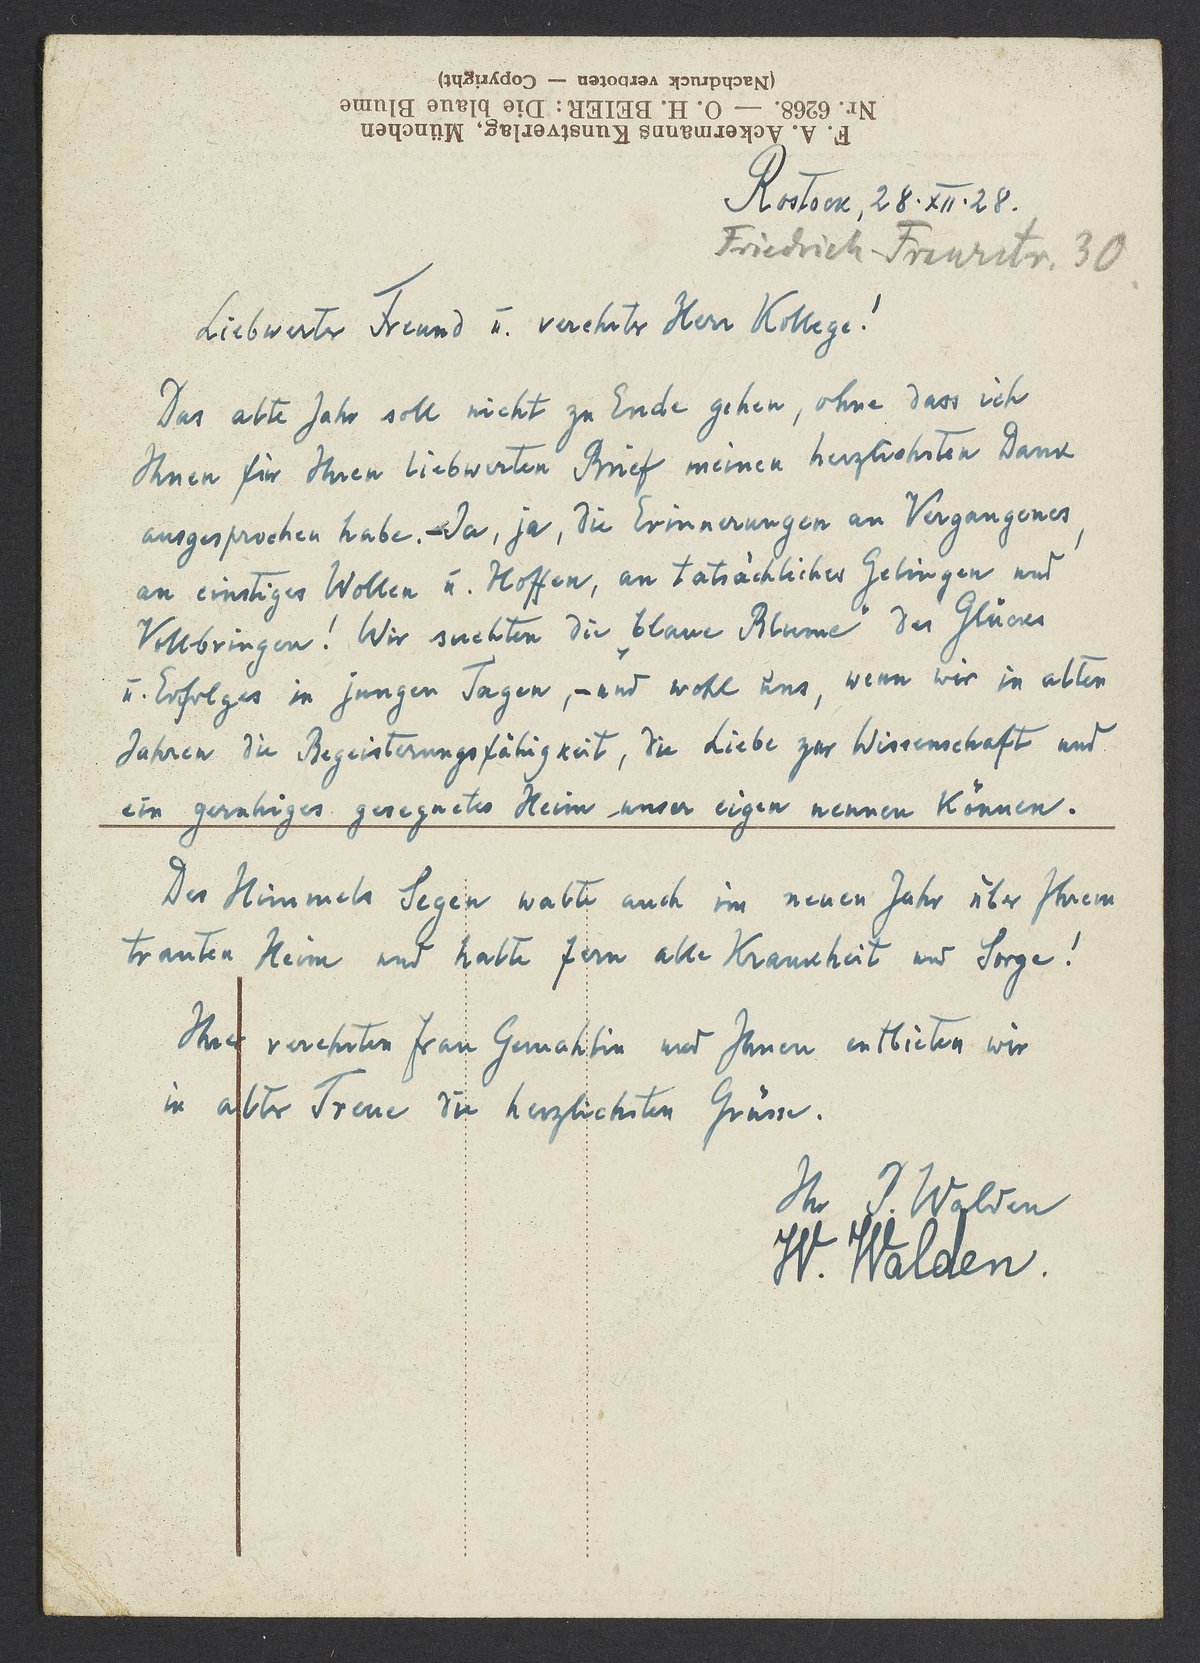 F. A. Ackermanns Kunstverlag, München
Nr. 6268. — O. H. BEIER: Die blaue Blume
(Nachdruck verboten — Copyright)
Rostock, 28.XII.28.
Friedrich-Franzstr. 30
Liebwerter Freund u. verehrter Herr Kollege!
Das alte Jahr soll nicht zu Ende gehen, ohne dass ich
Ihnen für Ihren liebwerten Brief meinen herzlichsten Dank
ausgesprochen habe. – Ja, ja, die Erinnerungen an Vergangenes,
an einstiges Wollen u. Hoffen, an tatsächliches Gelingen und
Vollbringen! Wir suchten die „blaue Blume“ des Glückes
u. Erfolges in jungen Tagen, – und wohl uns, wenn wir in alten
Jahren die Begeisterungsfähigkeit, die Liebe zur Wissenschaft und
ein geruhiges gesegnetes Heim unser eigen nennen können.
Des Himmels Segen walte auch im neuen Jahr über Ihrem
trauten Heim und halte fern alle Krankheit und Sorge!
Ihrer verehrten Frau Gemahlin und Ihnen entbieten wir
in alter Treue die herzlichsten Grüsse.
Ihr P. Walden
W. Walden.